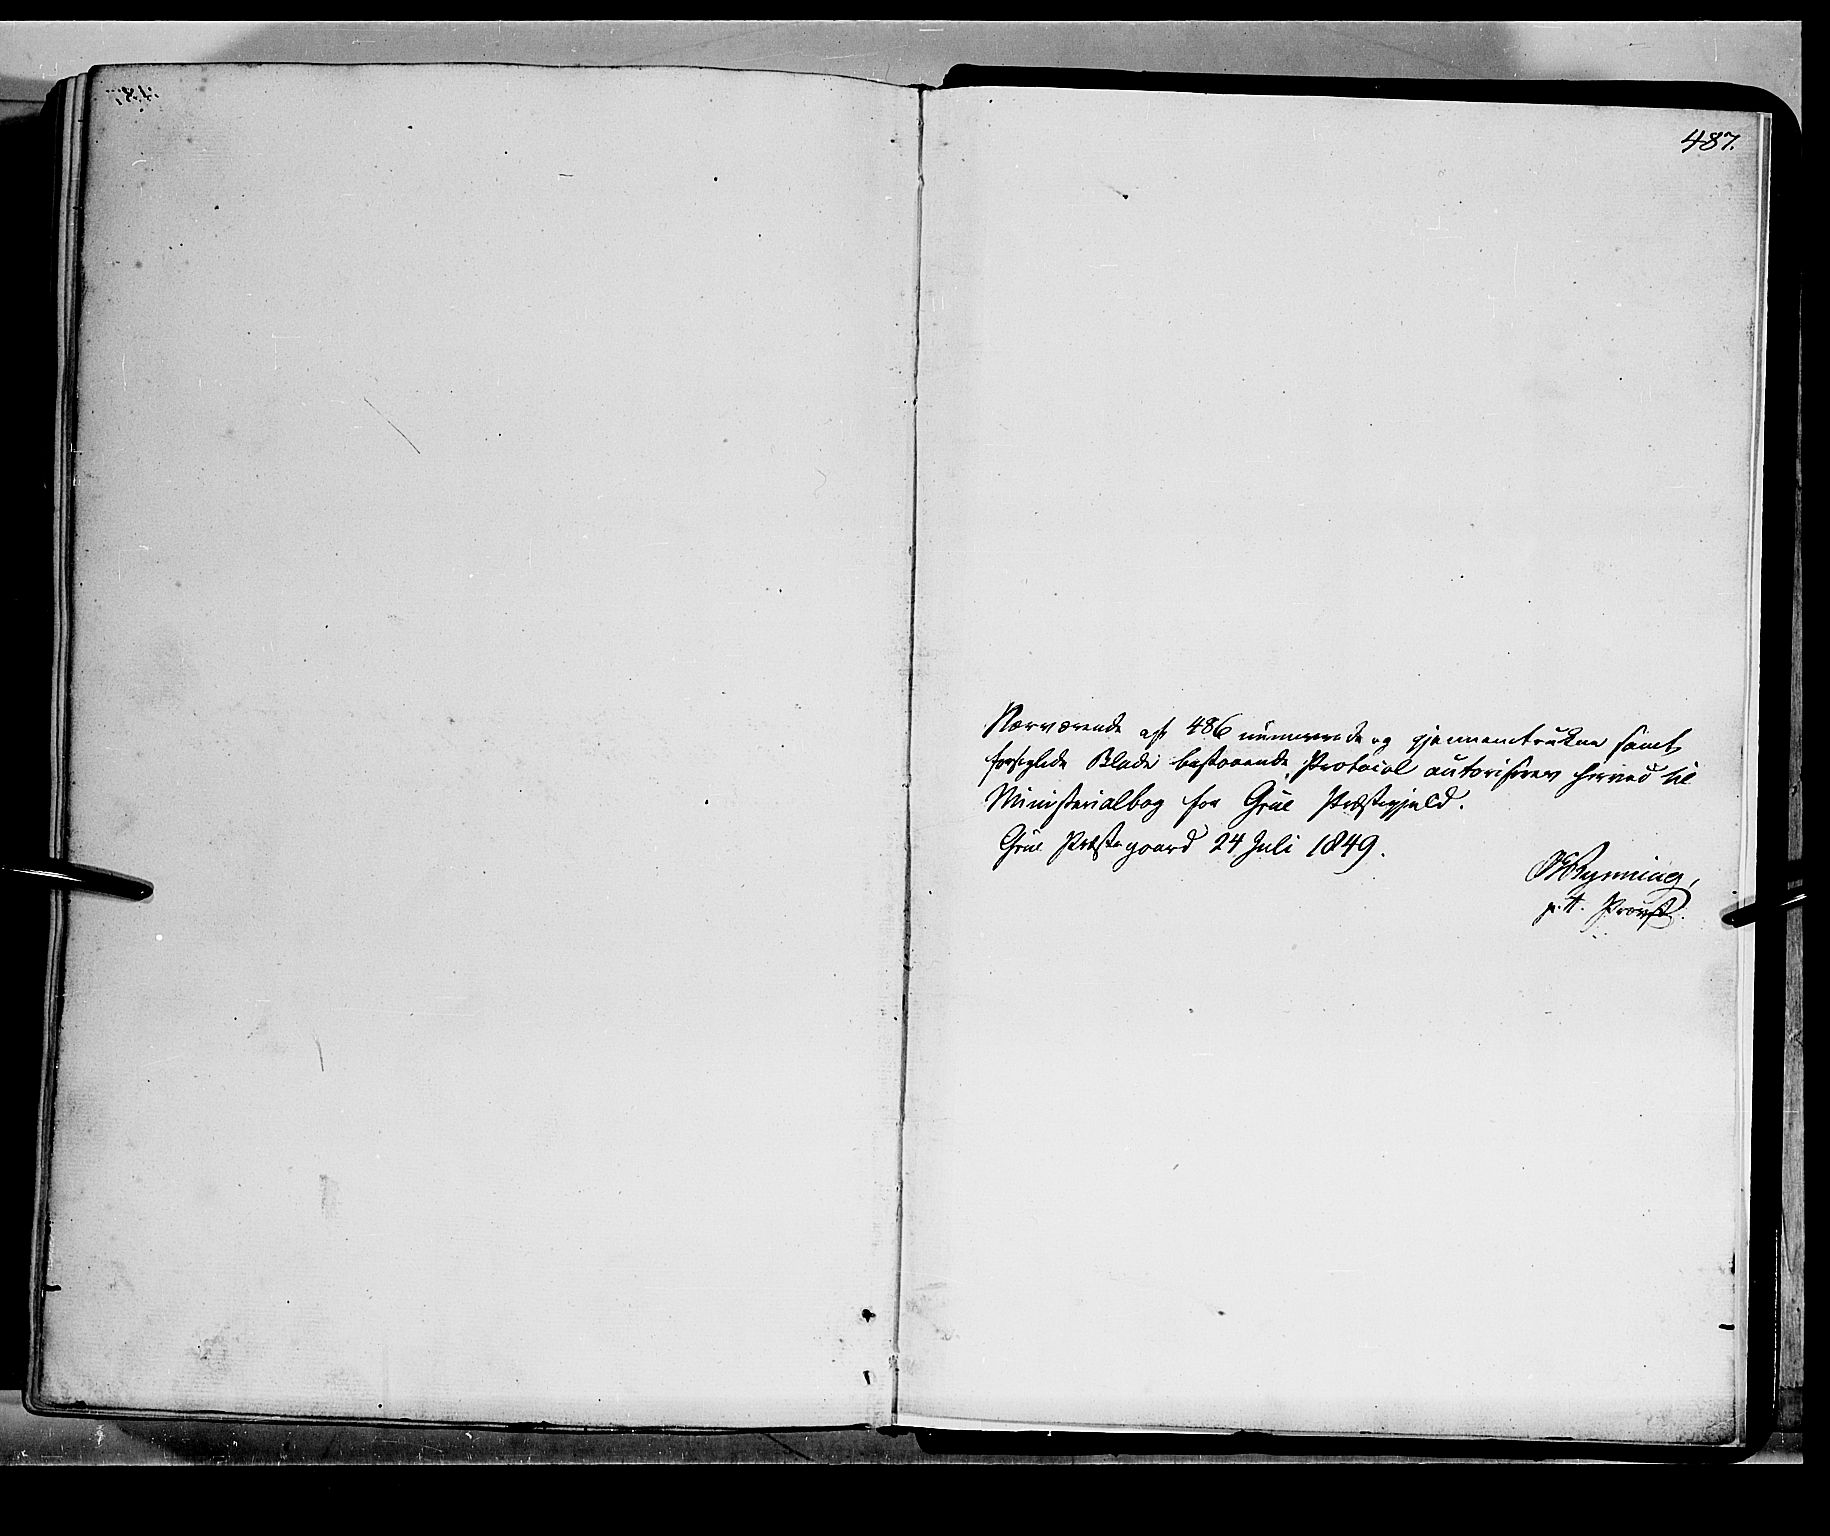 487.
Nærværende af 486 numerede og gjennemtrukne samt
forseglede Blade bestaaende Protocol autoriseres herved til
Ministerialbog for Grue Præstegjeld.
Grue Præstegaard 24 Juli 1849.
Rynning,
p. t. Provst.